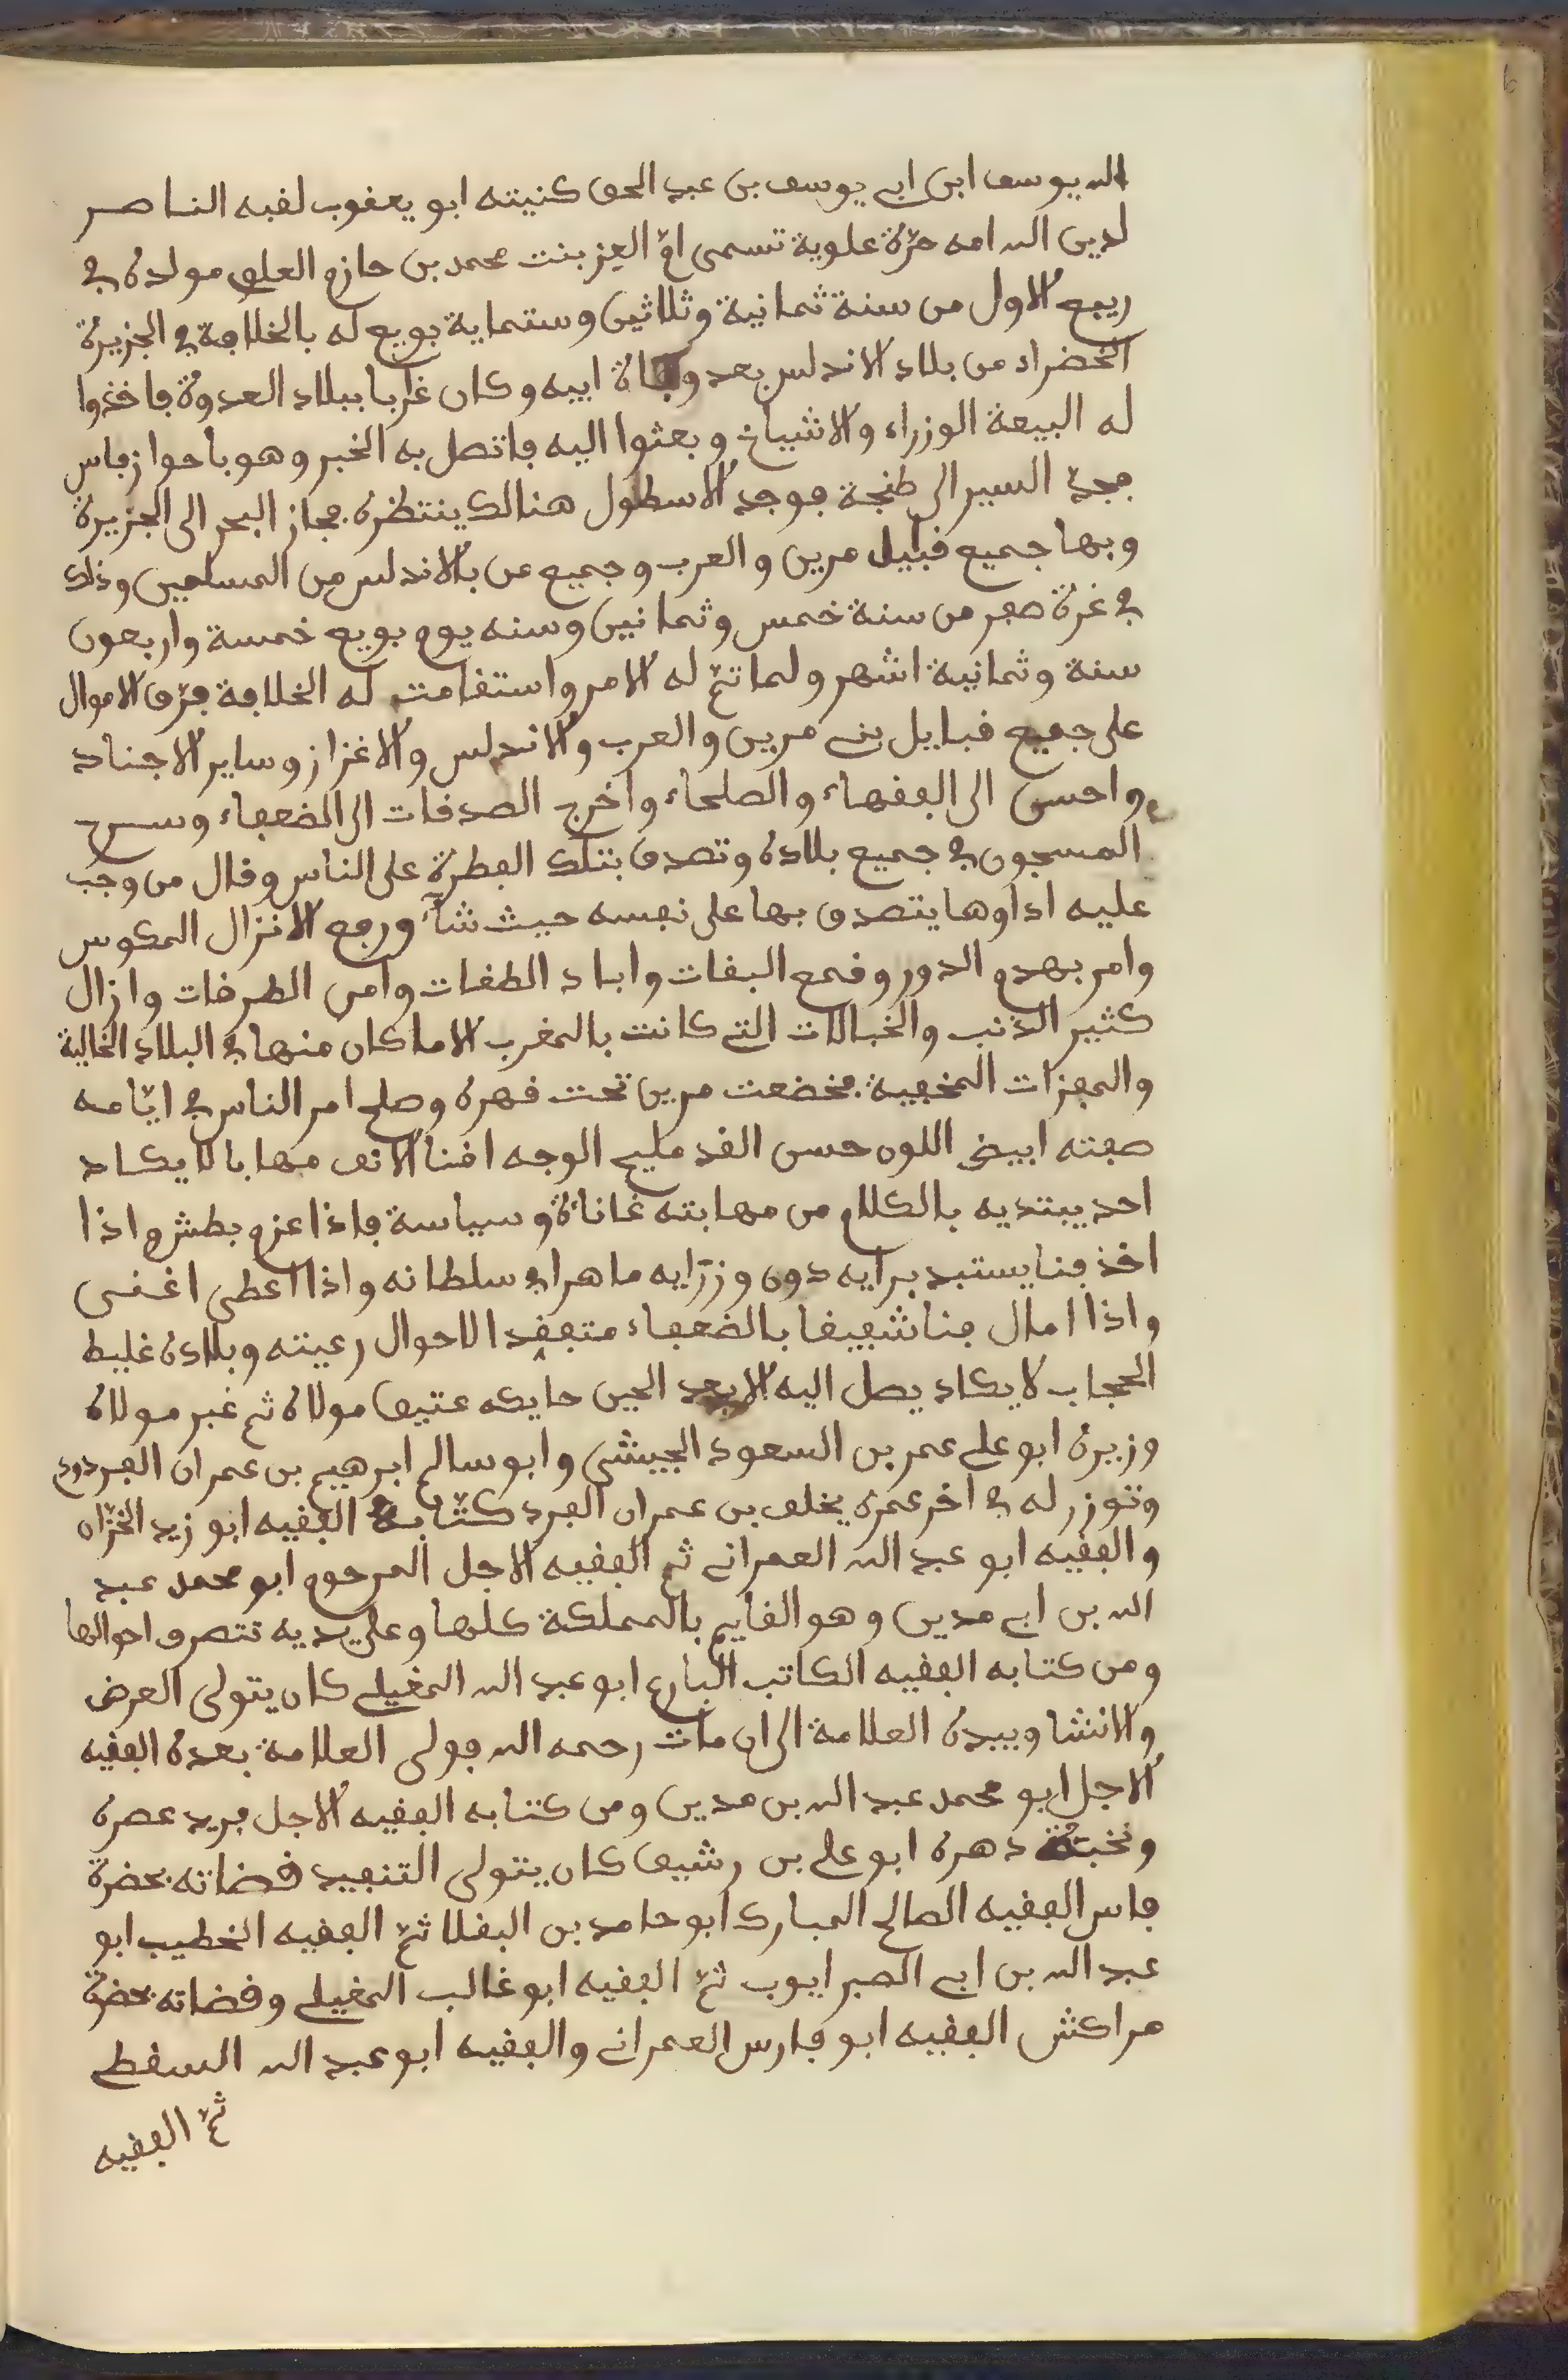 الله يوسف ابن ابي يوسف بن عبد الحق كنيته ابو يعقوب لقبه الناصر
لدين الله امه حرّة علوية تسمى امّ العز بنت محمد بن حازم العلوي مولده في
ربيع الاول من سنة ثمانية وثلاثين وستماية بويع له بالخلافة في الجزيرة
الخضراء من بلاد الاندلس بعد وفاة ابيه وكان غايبا ببلاد العدوة فاخذوا
له البيعة الوزراء والاشياخ وبعثوا اليه فاتصل به الخبر وهو باحواز فاس
فجدّ السير الى طنجة فوجد الاسطول هنالك ينتظره فجاز البحر الى الجزيرة
وبها جميع قبايل مرين والعرب وجميع من بالاندلس من المسلمين وذلك
في غرة صفر من سنة خمس وثمانين وسنه يوم بويع خمسة واربعون
سنة وثمانية اشهر ولما تمّ له الامر واستقامت له الخلافة فرّق الاموال
على جميع قبايل بني مرين والعرب والاندلس والاغزاز وساير الاجناد
واحسن الى الفقهاء والصلحاء واخرج الصدقات الى الضعفاء وسرح
المسجون في جميع بلاده وتصدق بتلك الفطرة على الناس وقال من وجب
عليه اداوها يتصدق بها على نفسه حيث شاء ورفع الانزال المكوس
وامر بهدم الدور وقمع البغات واباد الطغات وامن الطرقات وازال
كثير الذنب والخبالات التي كانت بالمغرب الا ما كان منها في البلاد الخالية
والمفزات المخفية فخضعت مرين تحت قهره وصلح امر الناس في ايّامه
صفته ابيض اللون حسن القد مليح الوجه اقنا الانف مهابا لا يكاد
احد يبتديه بالكلام من مهابته غاناة وسياسة فاذا عزم بطش واذا
اخذ فنا يستبد برايه دون وزرايه ماهرا في سلطانه واذا اعطى اغنى
واذا امال فنا شفيقا بالضعفاء متفقدا لاحوال رعيته وبلاده غليظ
الحجاب لا يكاد يصل اليه الا بعد الحين حايكه عتيق مولاه ثم غبر مولاه
وزيره ابو علي عمر بن السعود الجيشي وابو سالم ابرهيم بن عمران الفردودي
وتوزر له في اخر عمره يخلف بن عمران الفرد كتّابه الفقيه ابو زيد الخزّان
والفقيه ابو عبد الله العمراني ثم الفقيه الاجل المرحوم ابو محمد عبد
الله بن ابي مدين وهو القايم بالمملكة كلها وعلى يديه تتصرف احوالها
ومن كتابه الفقيه الكاتب البارع ابو عبد الله المغيلي كان يتولى العرض
والانشا وبيده العلامة الى ان مات رحمه الله فولى العلامة بعده الفقيه
الاجل ابو محمد عبد الله بن مدين ومن كتابه الفقيه الاجل فريد عصره
ونخبة دهره ابو علي بن رشيق كان يتولى التنفيد قضاته بحضرة
فاس الفقيه الصالح المبارك ابو حامد بن البقلا ثمّ الفقيه الخطيب ابو
عبد الله بن ابي الصبر ايوب ثمّ الفقيه ابو غالب المغيلي وقضاته بحضرة
مراكش الفقيه ابو فارس العمراني والفقيه ابو عبد الله السقطي
ثمّ الفقيه